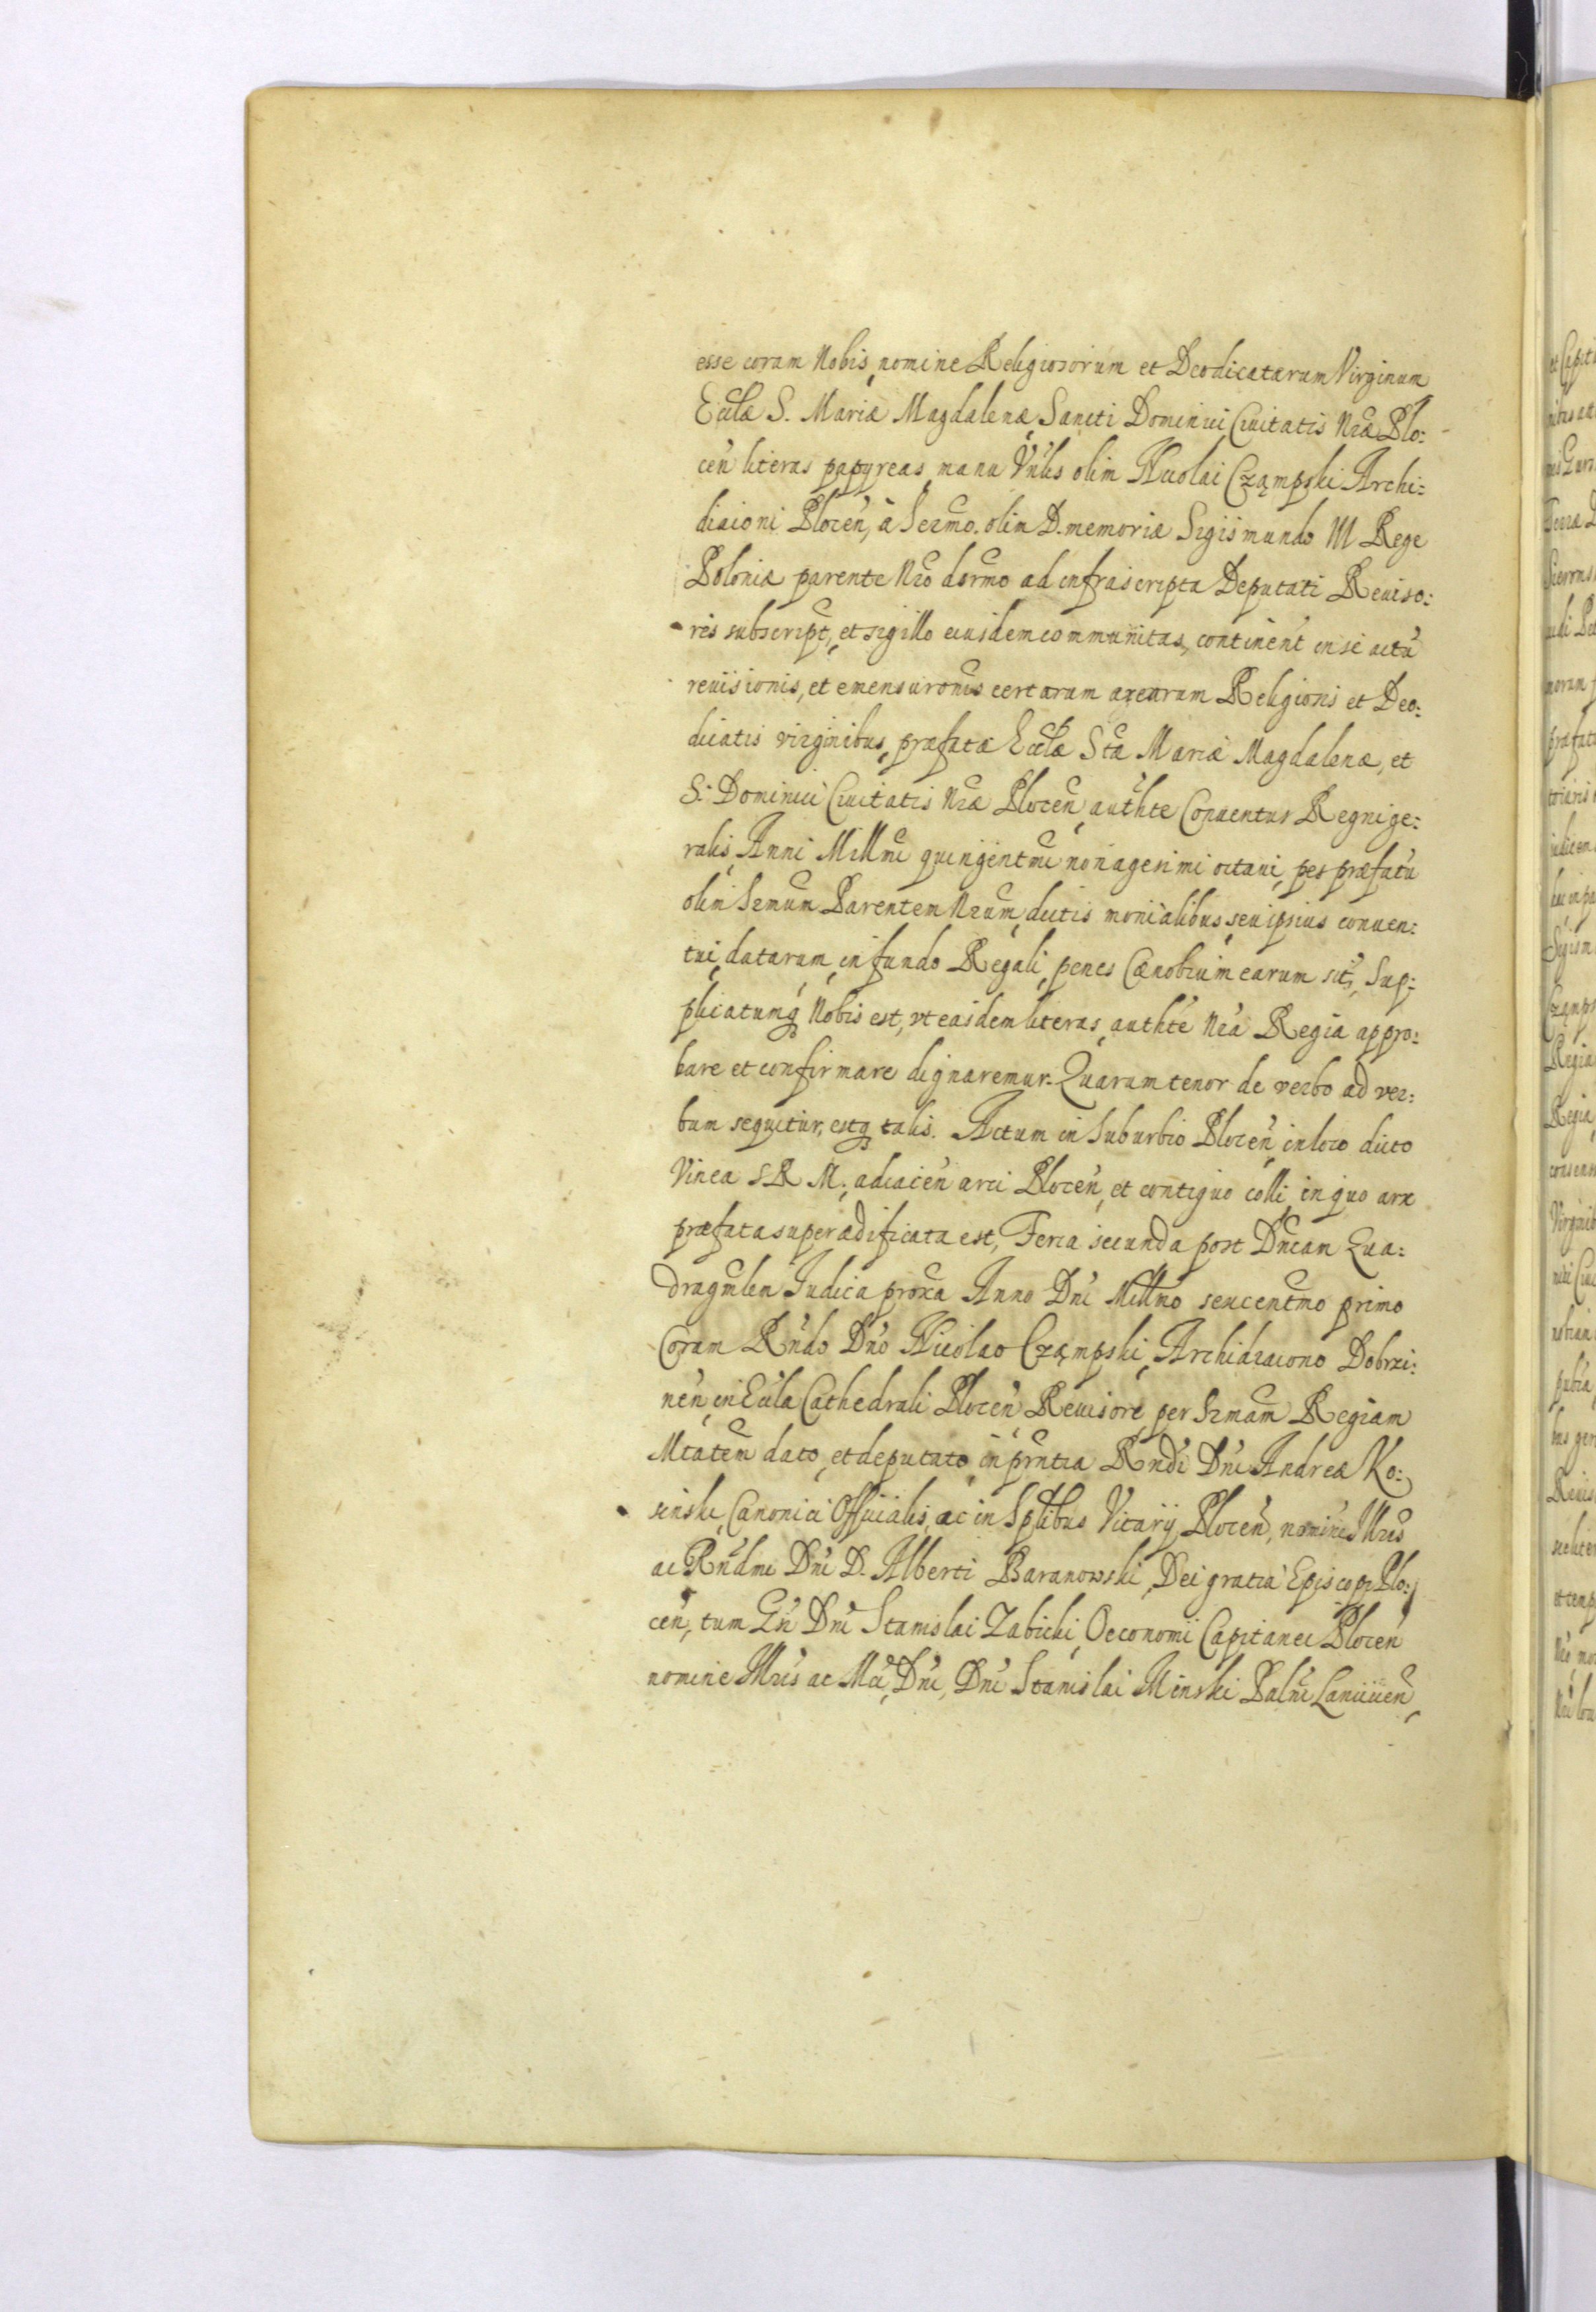 esse coram Nobis nomine Religiosorum et Deodicatarum Virginum
Ecclæ S. Mariæ Magdalenæ Sancti Dominici Civitatis Nræ Plo:
cen̄ literas papyreas manu Vn̄lis olim Nicolai Cząmpski Archi:
diaconi Plocen̄, à Sermo. olim D. memoriæ Sigismundo III Rege
Poloniæ parente Nr̄o desmo ad infrascripta Deputati Reuiso:
ris subscript, et sigillo eiusdem communitas, continen̄t in se actū
reuisionis, et emensuron̄is certarum arearum Religionis et Deo:
dicatis virginibus præfatæ Ecclæ Stæ Mariæ Magdalenæ, et
S. Dominici Ciuitatis Nræ Plocen̄ auth̄te Conuentus Regni ge:
ralis, Anni Mill̄mi quingent̄mi nonagesimi octaui, per præfatū
olim Srm̄um Parentem Nrum, dictis monialibus, seu ipsius conuen:
tui, datarum, in fundo Regali, penes Cænobium earum sit̄, Sup:
plicatumq̨ Nobis est, vt easdem literas auth̄te Nr̄a Regia appro:
bare et confirmare dignaremur. Quarum tenor de verbo ad ver:
bum sequitur, estq̨ talis. Actum in Suburbio Plocen̄, in loco dicto
Vinea S R M. adiacen̄ arci Plocen̄, et contiguo colli, in quo arx
præfata superædificata est, Feria secunda post Dn̄icam Qua:
dragm̄lem Iudica proxa Anno Dn̄i Mill̄no sexcentmo primo
Coram Rn̄do Dn̄o Nicolao Cząmpski, Archidiacono Dobrzi:
nen̄, in Eccla Cathedrali Plocen̄ Reuisore, per Srm̄am Regiam
Mtatem dato, et deputato in prn̄tia Rn̄di Dn̄i Andreæ Ko:
sinski, Canonici Officialis, ac in Splibus Vicarij Plocen̄, nomine Illris
ac Rn̄dmi Dn̄i D. Alberti Baranowski, Dei gratia Episcopi Plo:
cen̄, tum Gn̄ Dn̄i Stanislai Zabicki, Oeconomi Capitanei Plocen̄
nomine Illris ac Mci, Dn̄i, Dn̄i Stanislai Minski Paln̄i Lanciicen̄,